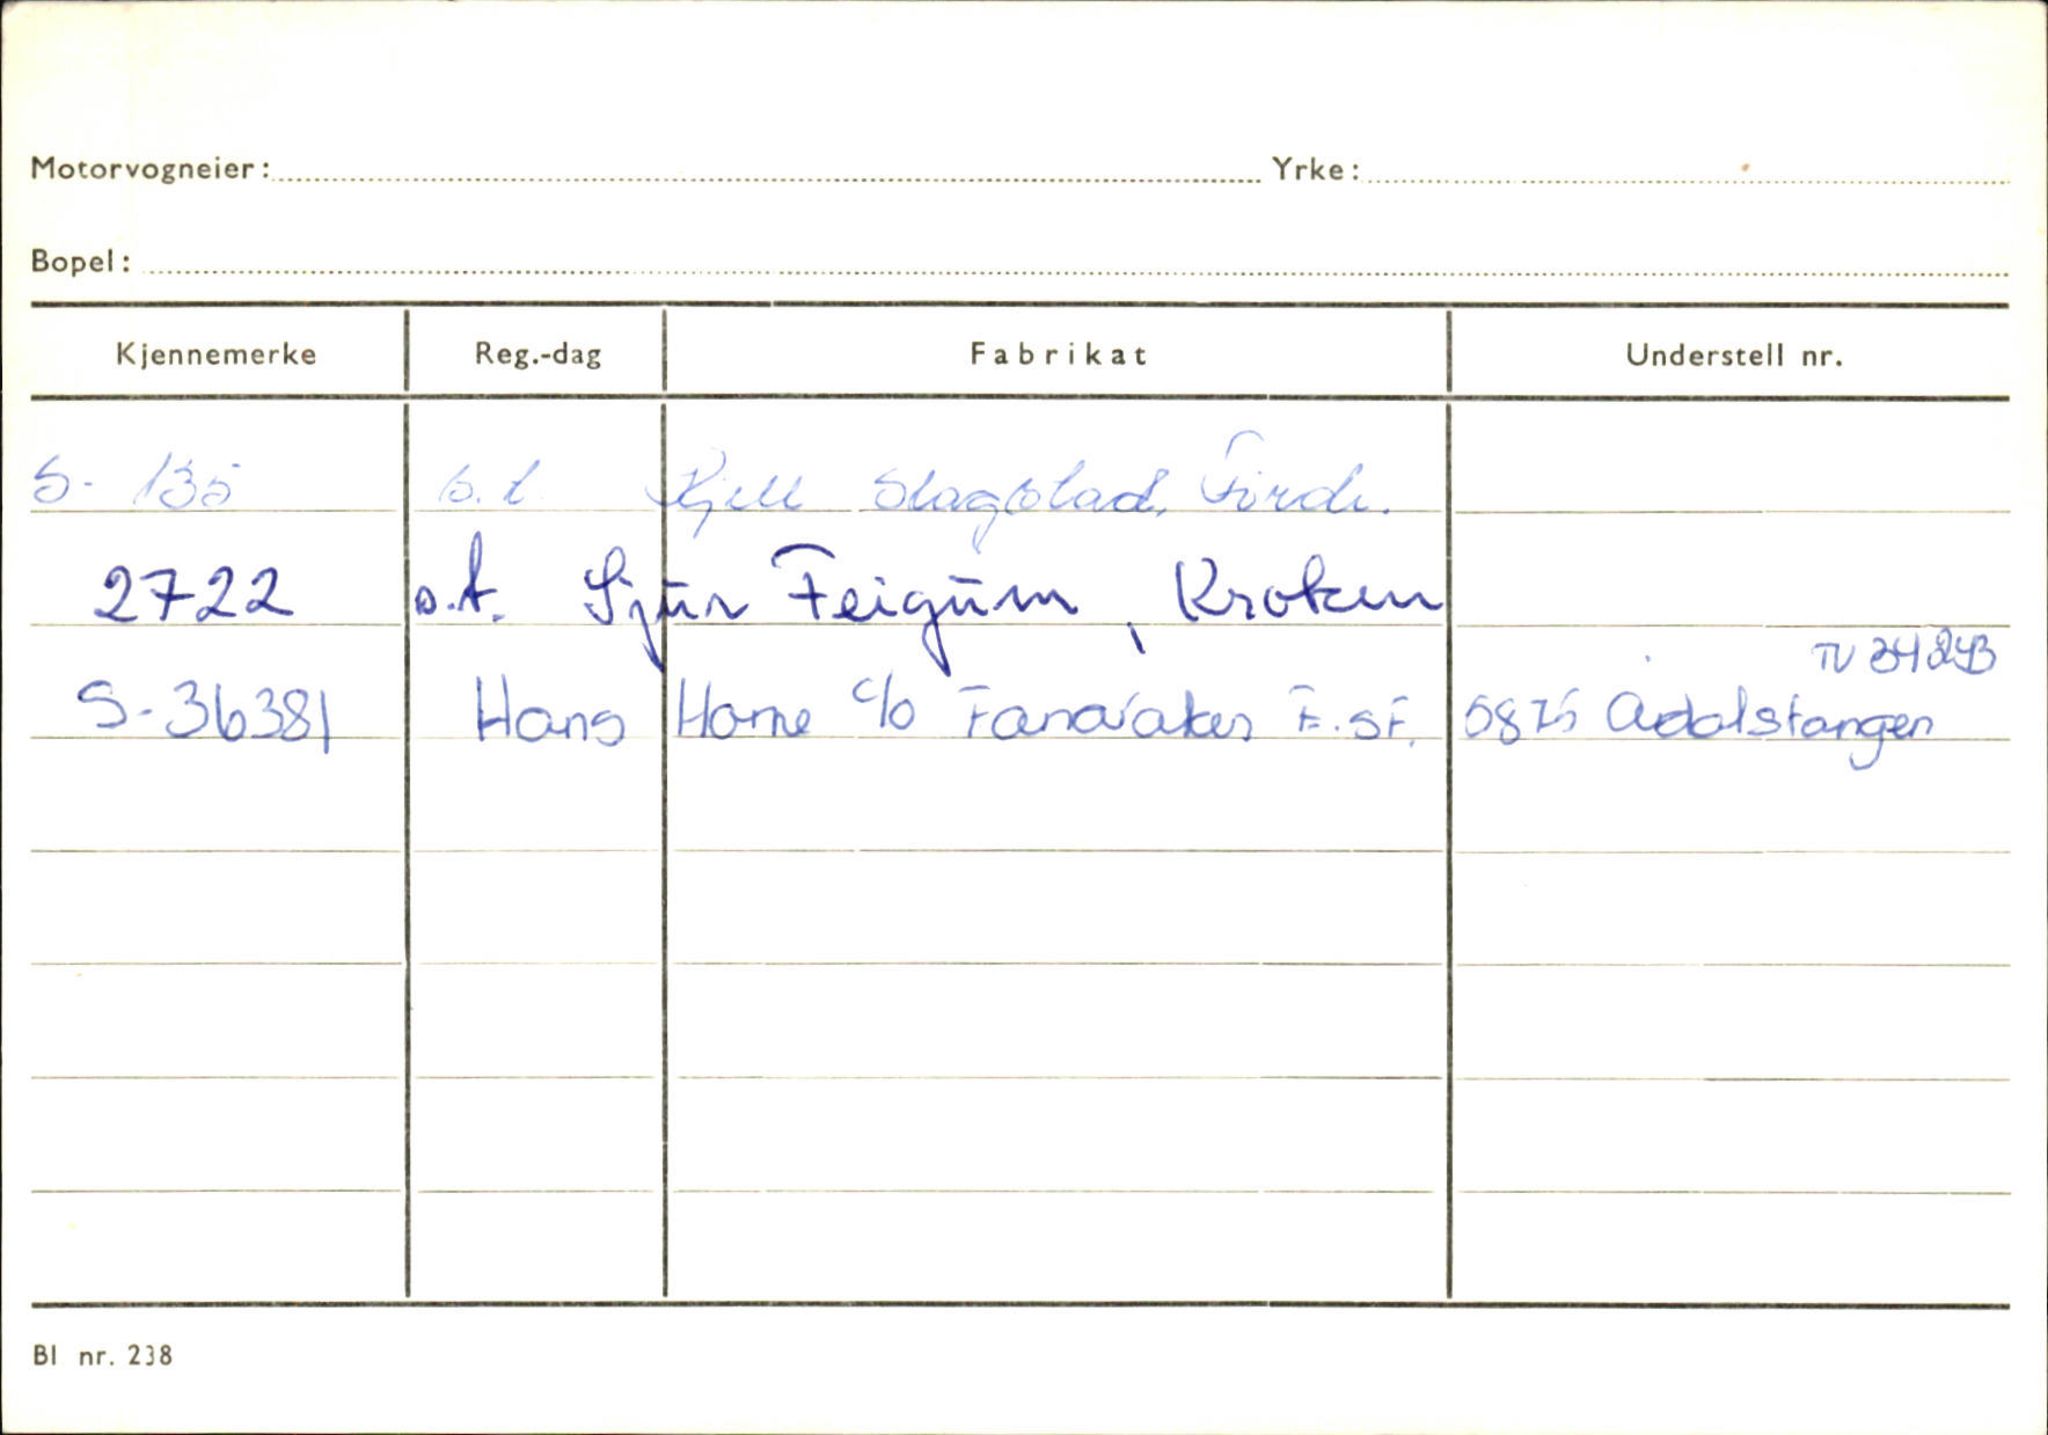 Motorvogneier: Yrke:
Bopel:
Kjennemerke Reg.-dag Fabrikat Understell nr.
S- 135 s.t. Kjell Slagstad, Førde.
2722 s.t. Sjur Feigum, Kroken
TV 34243
S-36381 Hans Horne c/o Fanaråken F.SF. 5875 Årdalstangen
Bl nr. 238